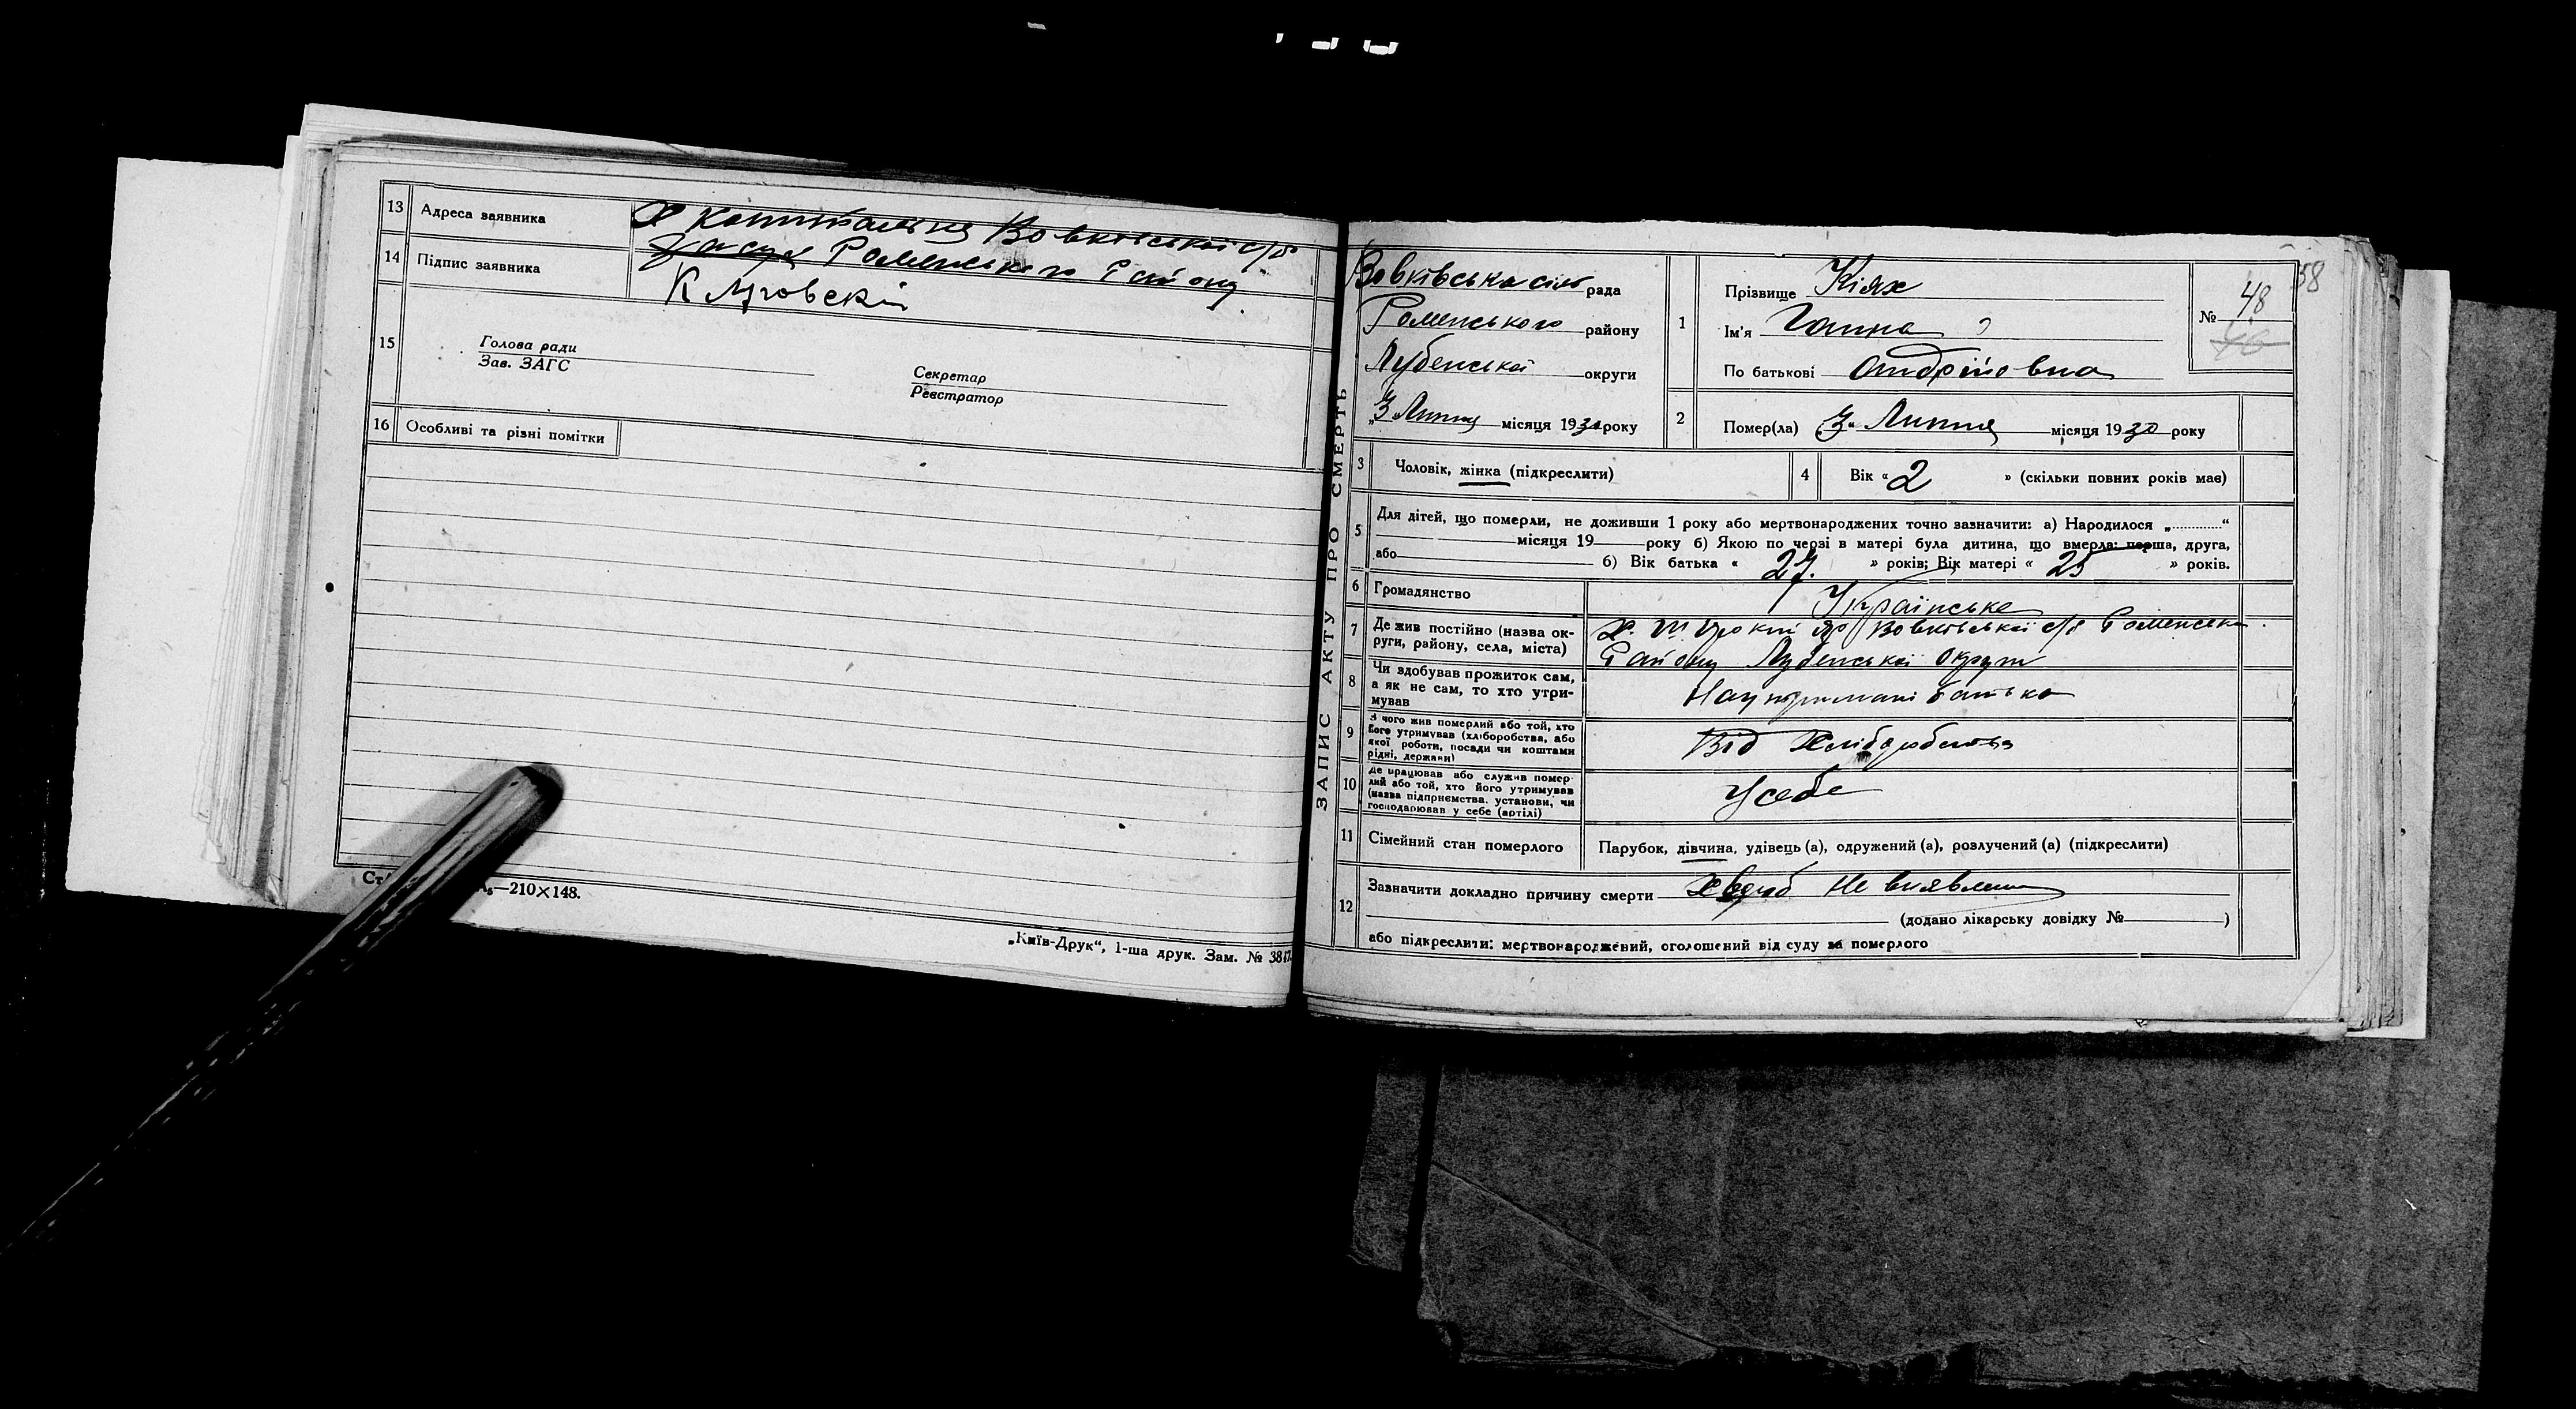 13 Адреса заявника
Х Вовківської с/р
Роменського Району
14 Підпис заявника
15
Голова ради
Зав. ЗАГС
Секретар
Реєстратор
16 Особливі та різні помітки
—210×148.
„Київ-Друк“, 1-ша друк. Зам. №
ЗАПИС АКТУ ПРО СМЕРТЬ
58
Вовківська сіль рада
Роменського району
Лубенської округи
„3 Липня місяця 1930 року
1 Прізвище Кіях
Ім'я Ганна
По батькові Андріївна
№ 48
2 Помер(ла) „3“ Липня місяця 1930 року
3 Чоловік, жінка (підкреслити)
4 Вік «2 » (скільки повних років має)
5 Для дітей, що померли, не доживши 1 року або мертвонароджених точно зазначити: а) Народилося „............“
місяця 19 року б) Якою по черзі в матері була дитина, що вмерла: перша, друга,
або б) Вік батька « 27. » років; Вік матері « 25 » років.
6 Громадянство Українське
7 Де жив постійно (назва ок-
руги, району, села, міста)
Х. Широкий яр Вовківської с/р Роменськ
Району Лубенської округи
8 Чи здобував прожиток сам,
а як не сам, то хто утри-
мував
На утриманні батька
9 З чого жив померлий або той, хто
його утримував (хліборобства, або
якої роботи, посади чи коштами
рідні, держави)
Від Хліборобства
10 Де працював або служив помер-
лий або той, хто його утримував
(назва підприємства, установи, чи
господарював у себе (артілі)
У себе
11 Сімейний стан померлого Парубок, дівчина, удівець (а), одружений (а), розлучений (а) (підкреслити)
12 Зазначити докладно причину смерти Не виявлена
(додано лікарську довідку № )
або підкреслити: мертвонароджений, оголошений від суду за померлого